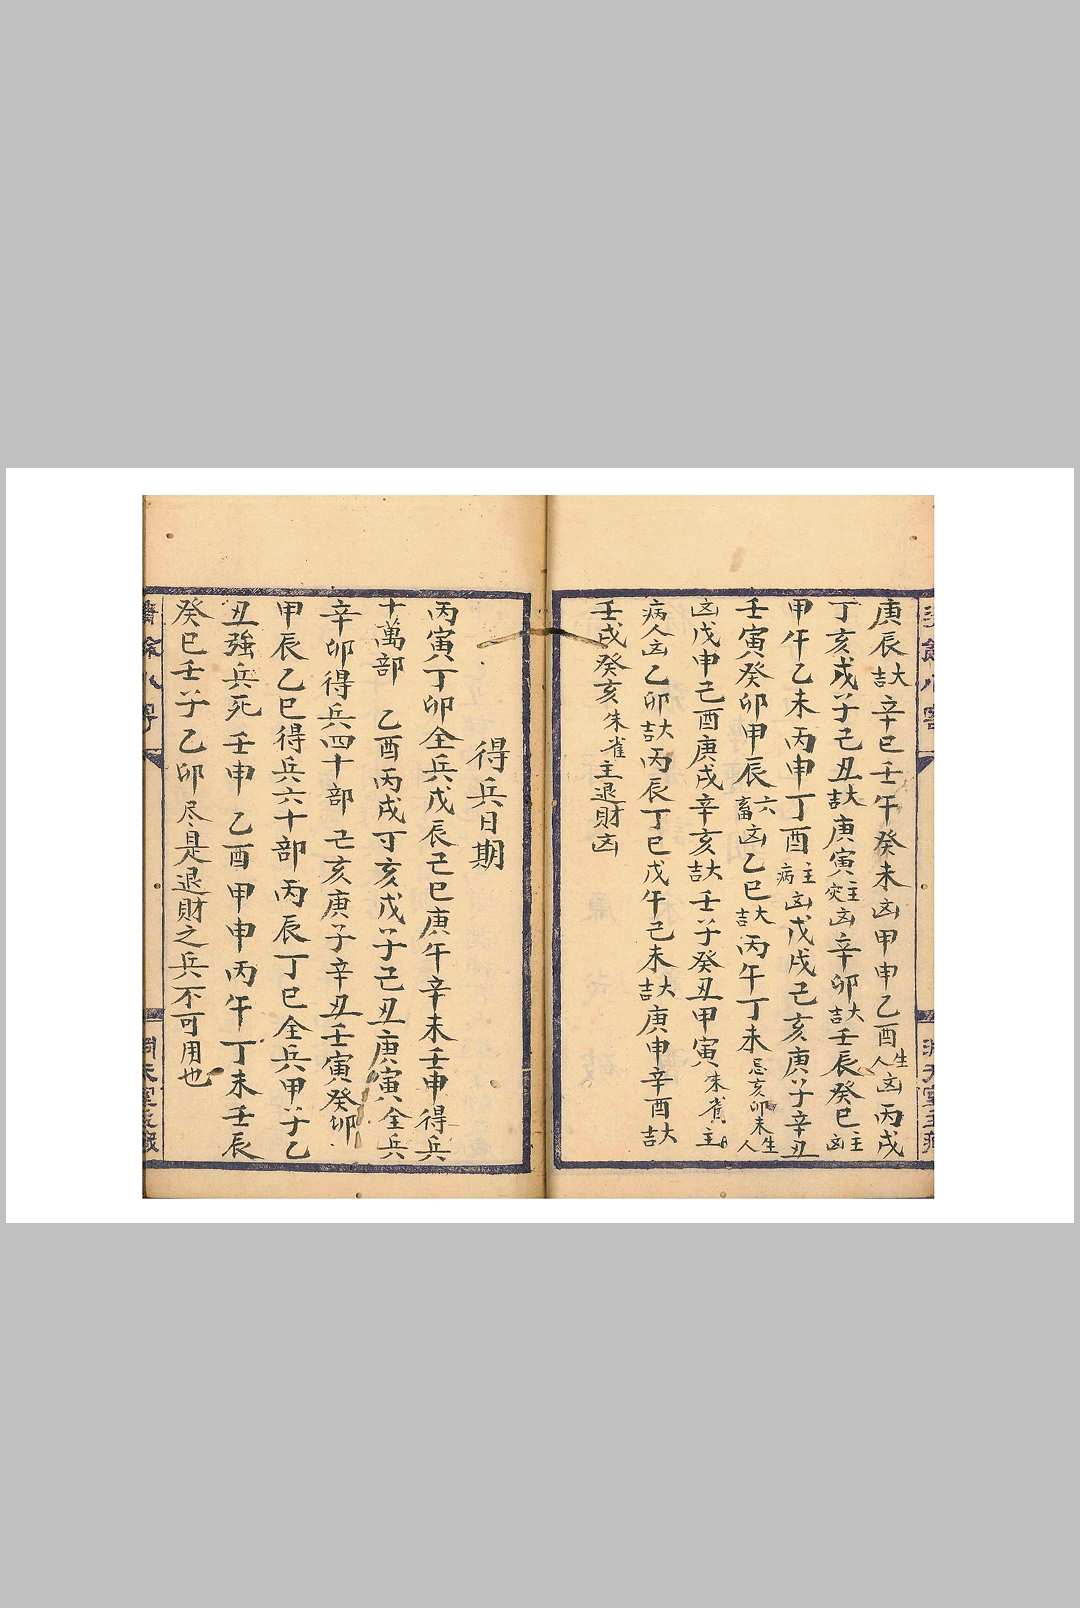 庚辰大吉辛巳壬午癸未凶甲申乙酉生人凶丙戌
丁亥戊子己丑大吉庚寅主灾凶辛卯大吉壬辰癸巳主凶
甲午乙未丙申丁酉主病凶戊戌己亥庚子辛丑
壬寅癸卯甲辰六畜凶乙巳大吉丙午丁未忌亥卯未生人
凶戊申己酉庚戌辛亥大吉壬子癸丑甲寅朱雀主
病人凶乙卯大吉丙辰丁巳戊午己未大吉庚申辛酉大吉
壬戌癸亥朱雀主退財凶
得兵日期
丙寅丁卯全兵戊辰己巳庚午辛未壬申得兵
十萬部 乙酉丙戌丁亥戊子己丑庚寅全兵
辛卯得兵四十部 己亥庚子辛丑壬寅癸卯
甲辰乙巳得兵六十部丙辰丁巳全兵甲子乙
丑強兵死 壬申 乙酉甲申丙午丁未壬辰
癸巳壬子乙卯尽是退財之兵不可用也